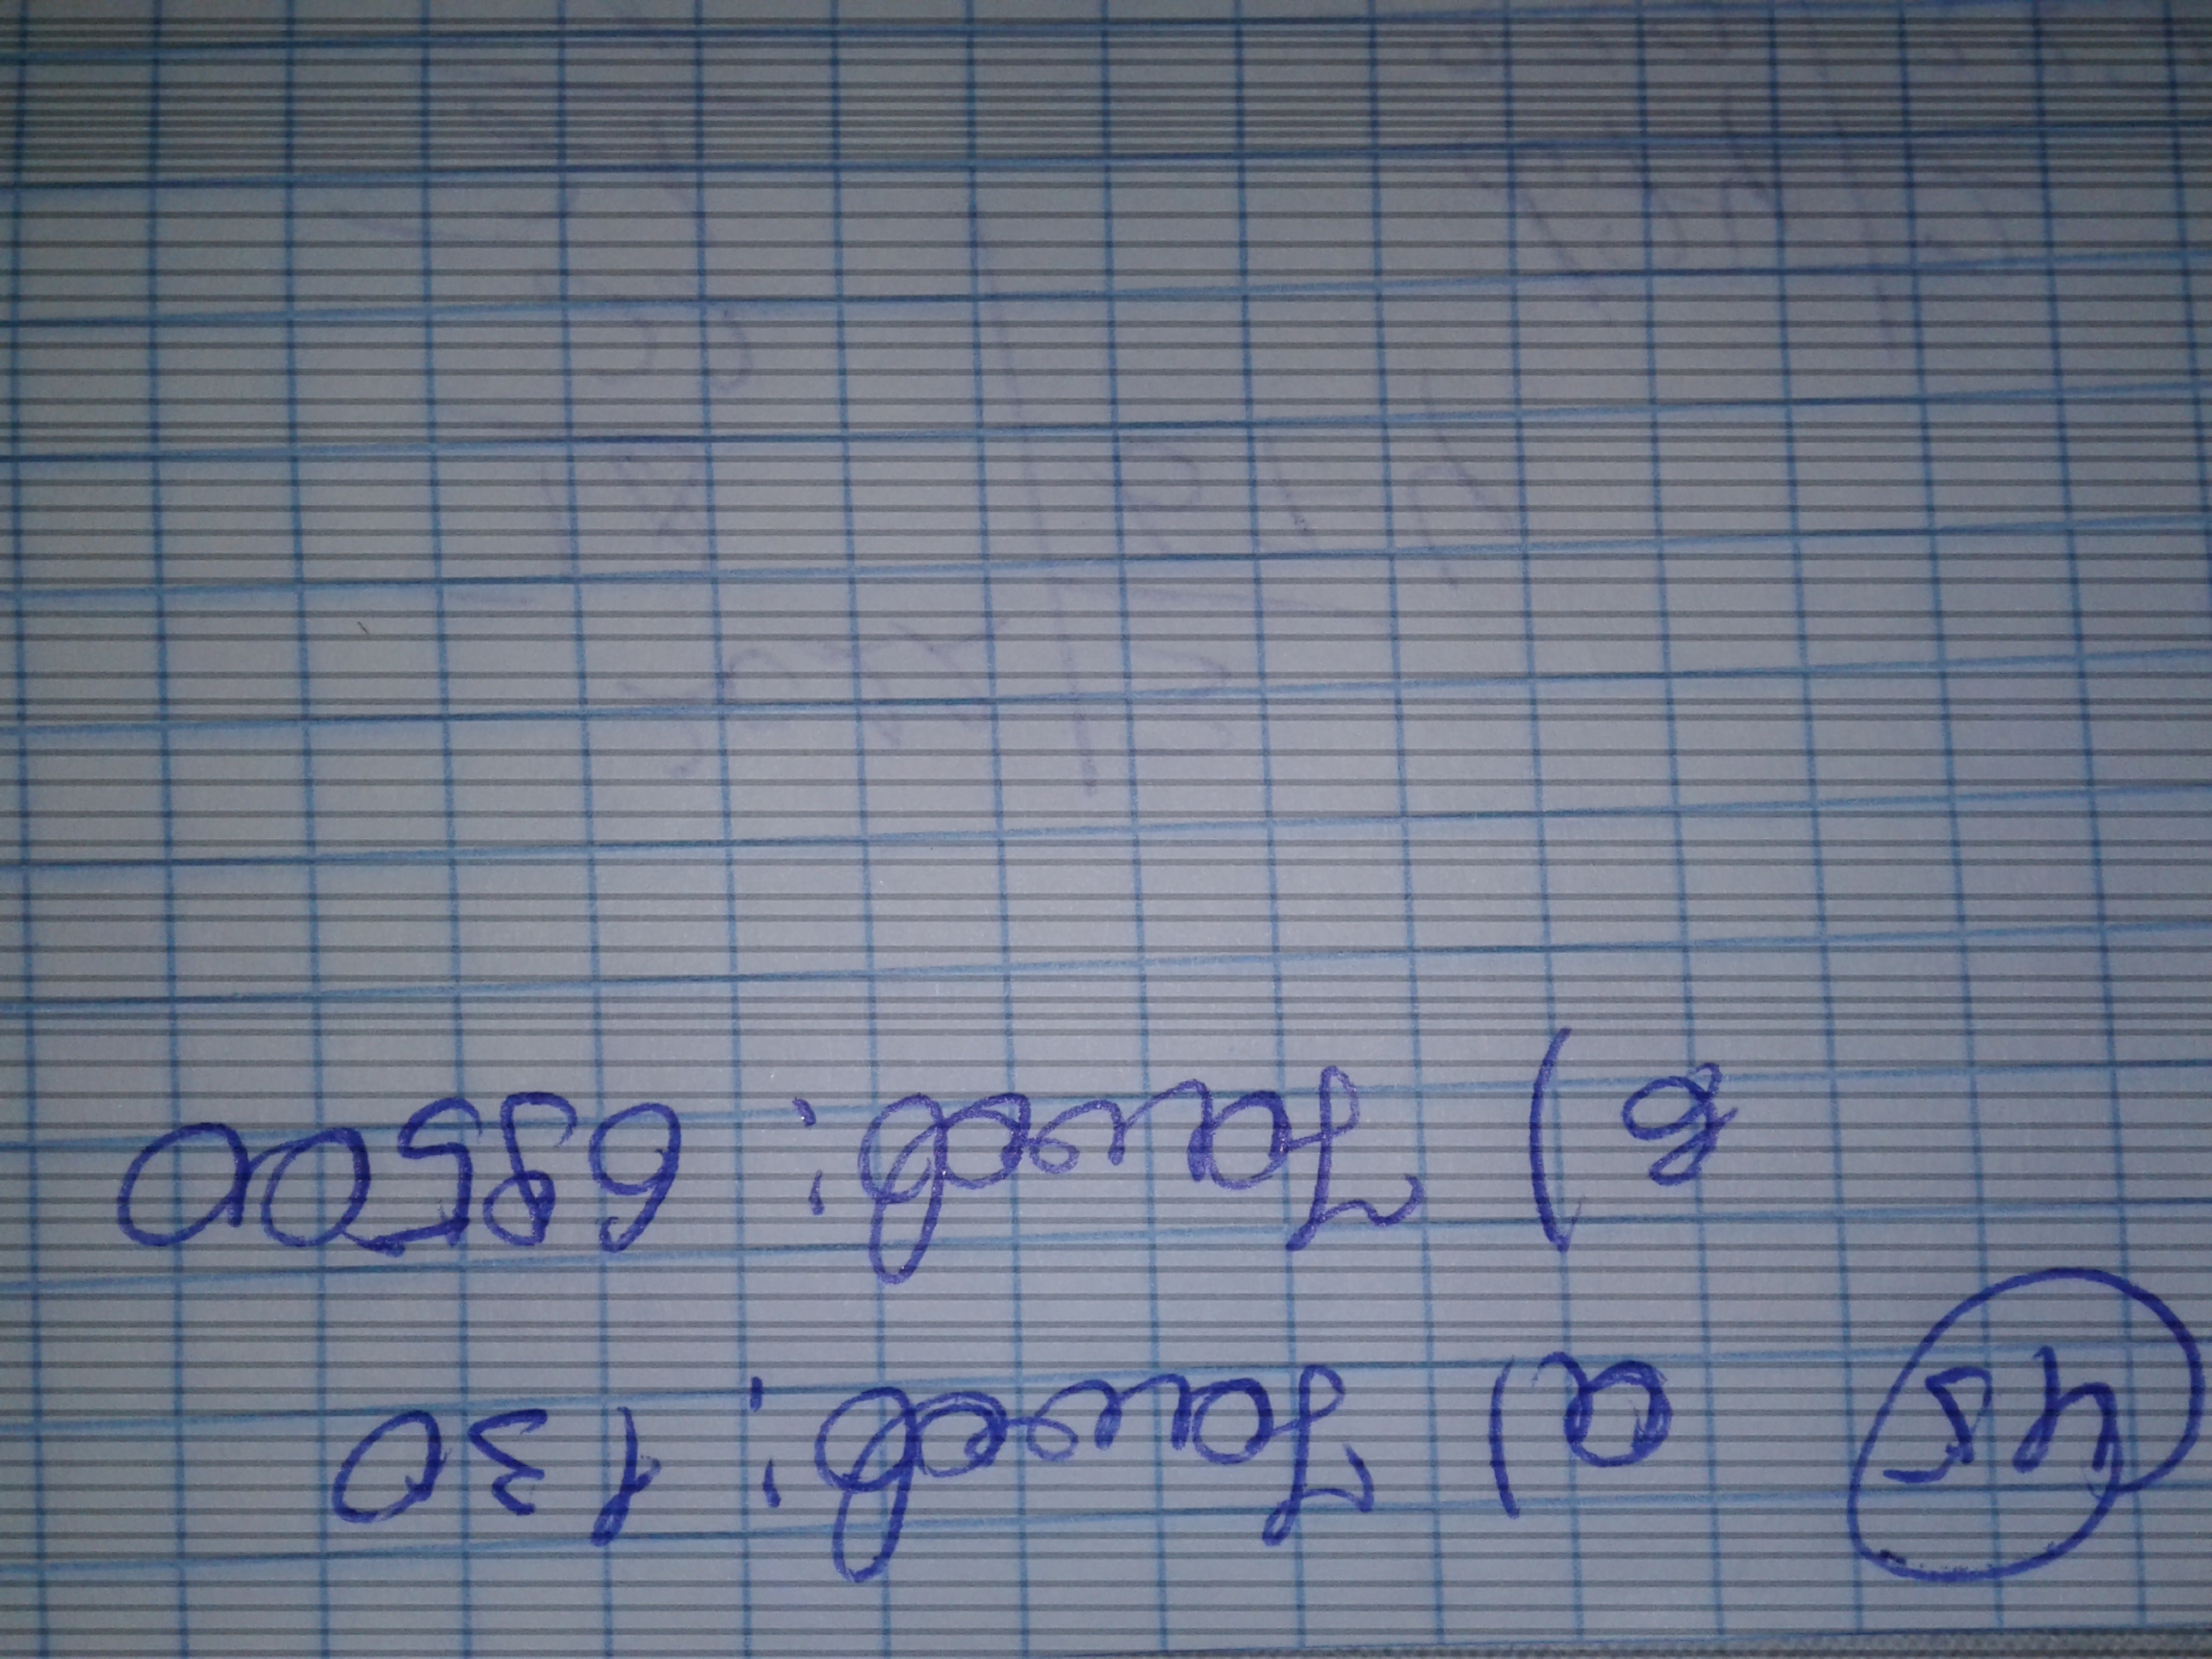 45 a) Javob: 130
b) Javob: 68500